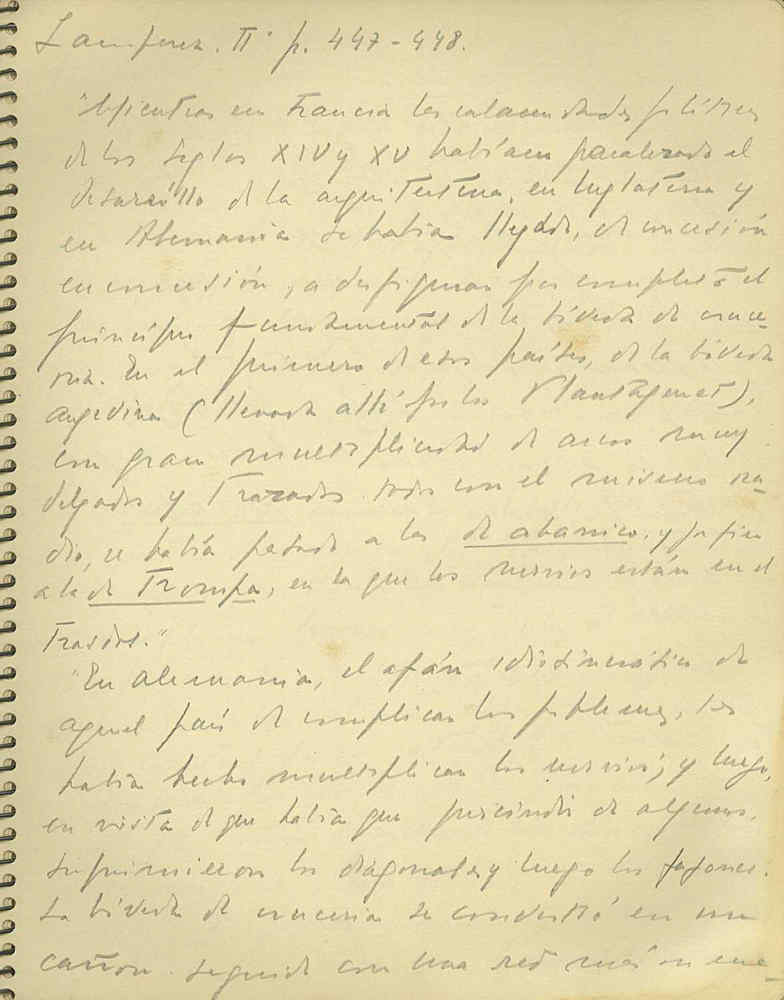 Lamperez. II. p. 447-448.
"Mientras en Francia las calamidades políticas
de los siglos XIV y XV habían paralizado el
desarrollo de la arquitectura, en Inglaterra y
en Alemania se había llegado, de concesión
en concesión, a desfigurar por completo el
principio fundamental de la bóveda de cruce-
ría. En el primero de esos países, de la bóveda
angevina (llevada allí por los Plantagenet),
con gran multiplicidad de arcos muy
delgados y trazados todos con el mismo ra-
dio, se había pasado a las de abanico, y por fin
a la de trompa, en la que los nervios están en el
trasdós."
"En Alemania, el afán idiosincrático de
aquel país de complicar los problemas, les
había hecho multiplicar los nervios; y luego,
en vista de que había que prescindir de algunos,
suprimieron los diagonales y luego los fajones.
La bóveda de crucería se convirtió en un
cañon seguido con una red más o me-